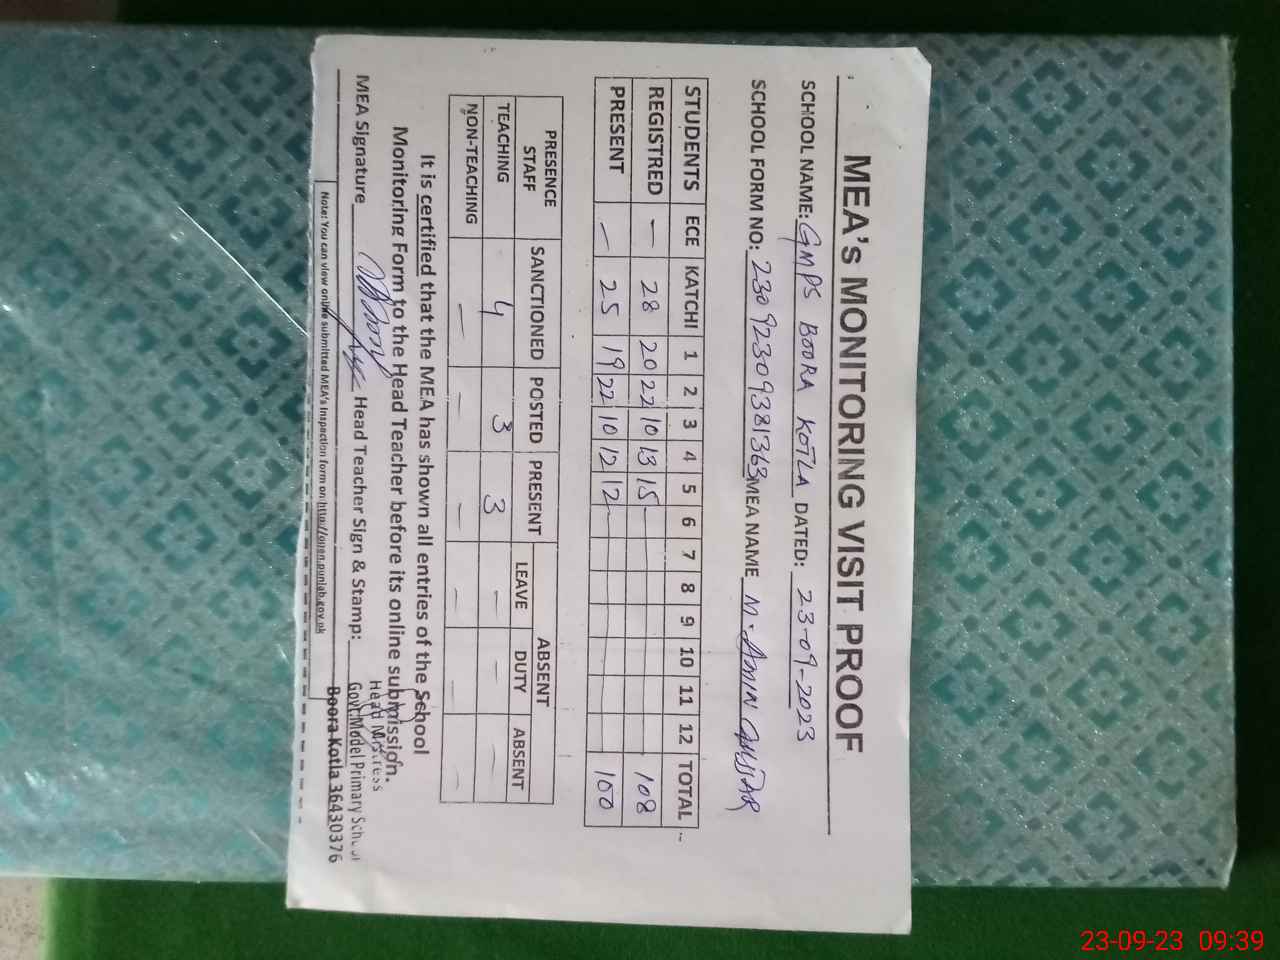 MEA's MONITORING VISIT PROOF
SCHOOL NAME: GMPS BOORA KOTLA DATED: 23-09-2023
SCHOOL FORM NO: 23092309381363 MEA NAME M. AMIN
STUDENTS ECE KATCHI 1 2 3 4 5 6 7 8 9 10 11 12 TOTAL
REGISTRED — 28 20 22 10 13 15 108
PRESENT — 25 19 22 10 12 12 100
PRESENCE STAFF SANCTIONED POSTED PRESENT ABSENT
LEAVE DUTY ABSENT
TEACHING 4 3 3 — — —
NON-TEACHING — — — — — —
It is certified that the MEA has shown all entries of the School
Monitoring Form to the Head Teacher before its online submission.
MEA Signature Head Teacher Sign & Stamp:
Head Mistress
Govt. Model Primary School
Boora Kotla 36430376
Note: You can view online submitted MEA's Inspection form on http://open.punjab.gov.pk
23-09-23 09:39